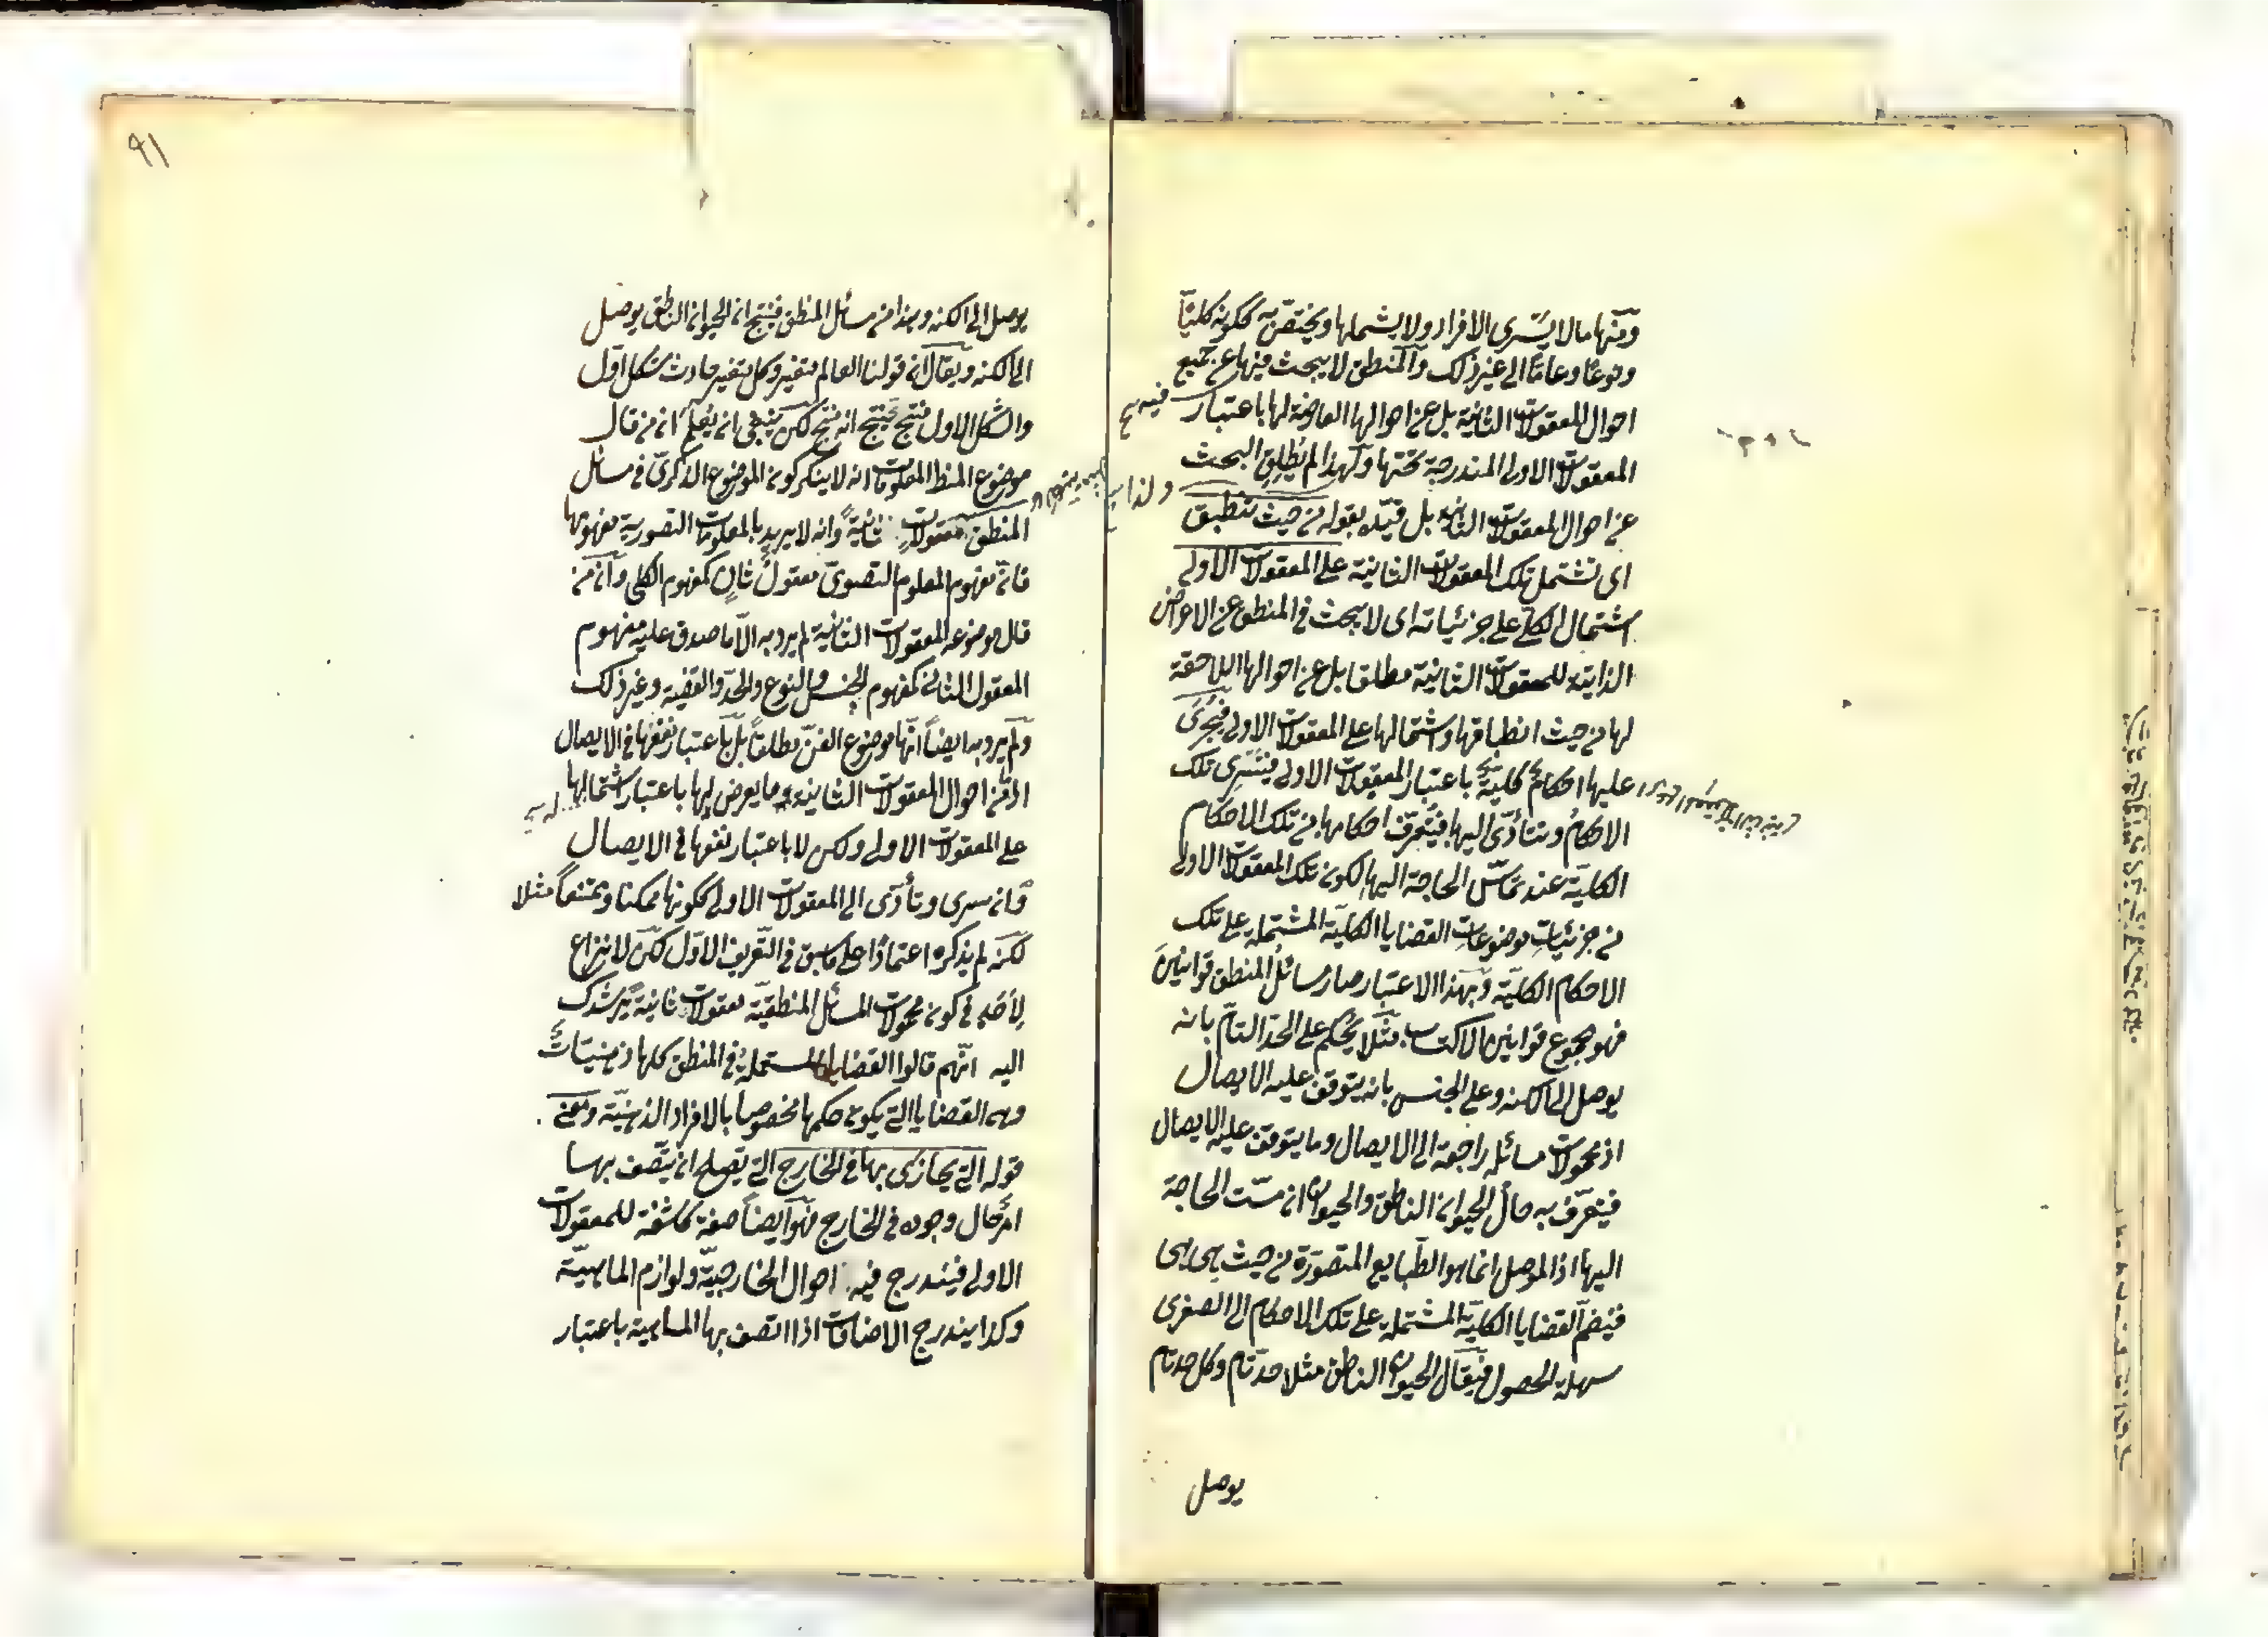 ومنها ما لا يسرى الافراد ولا يشملها ويختص به ككونه كليّا
ونوعًا وعامّا الى غير ذلك والمنطق لا يبحث فيها عن جميع
احوال المعقولات الثانية بل عن احوالها العارضة لها باعتبار
المعقولات الاولى المندرجة تحتها ولهذا لم يُطلِقِ البحث
عن احوال المعقولات الثانية بل قيّده بقوله من حيث تنطبق
اى تشتمل تلك المعقولات الثانية على المعقولات الاولى
اشتمال الكلّى على جزئياته اى لا يبحث فى المنطق عن الاعراض
الذاتية للمعقولات الثانية مطلقا بل عن احوالها اللاحقة
لها من حيث انطباقها واشتمالها على المعقولات الاولى فيُجرَى
عليها احكامٌ كليةٌ باعتبار المعقولات الاولى فيتسرى تلك
الاحكامُ وتتأدّى اليها فيُتعرّف احكامها من تلك الاحكام
الكليّة عند تمسّ الحاجة اليها لكون تلك المعقولات الاولى
من جزئياتِ موضوعاتِ القضايا الكليّة المشتملة على تلك
الاحكام الكليّة وبهذا الاعتبار صار مسائلُ المنطق قوانينَ
فهو مجموع قوانين الاكتساب مثلا يُحكم على الحدّ التامّ بانه
يوصل الى الكنه وعلى الجنس بانه يتوقف عليه الايصال
اذ محمولات مسائله راجعة الى الايصال وما يتوقف عليه الايصال
فيتعرّف به حالُ الحيوان الناطق والحيوان ان مسّت الحاجة
اليها اذ الموصل انما هو الطبايع المتصوّرة من حيث هى هى
فيُضمّ القضايا الكليّة المشتملة على تلك الاحكام الى الصغرى
سهلة الحصول فيقال الحيوان الناطق مثلا حدّ تام وكل حد تام
يوصل
٩١
يوصل الى الكنه وهذا من مسائل المنطق فينتج ان الحيوان الناطق يوصل
الى الكنه ويقال ان قولنا العالم متغير وكل متغير حادث شكل اوّل
والشكل الاول منتج فينتج انه منتج لكن ينبغى ان يُعلم ان من قال
موضوع المنطق المعلومات انه لا ينكر كون الموضوع الذكرىّ فى مسائل
المنطق معقولاتٍ ثانيةً وانه لا يريد بالمعلومات التصورية مفهومها
فانّ مفهوم المعلوم التصورىّ معقولٌ ثانٍ كمفهوم الكلى وان من
قال موضوعه المعقولات الثانية لم يرد به الّا ما صدق عليه مفهوم
المعقول الثانى كمفهوم الجنس والنوع والحدّ والقضية وغير ذلك
ولم يرد به ايضاً انّها موضوع الفنّ مطلقاً بل باعتبار نفعها فى الايصال
اذ من احوال المعقولات الثانية ما يعرض لها باعتبار اشتمالها
على المعقولات الاولى ولكن لا باعتبار نفعها فى الايصال
وان سرى وتأدّى الى المعقولات الاولى ككونها ممكنا وممتنعاً مثلا
لكنّه لم يذكره اعتمادًا على ما سبق فى التعريف الاوّل لكن لا نزاع
لِأحَدٍ فى كون محمولات المسائل المنطقيّة معقولات ثانيةً يُرشدك
اليه انّهم قالوا القضايا المستعملة فى المنطق كلها ذهنيّاتٌ
وهى القضايا التى يكون حكمها مخصوصا بالافراد الذهنيّة ومعنى
قوله التى يحاذى بها فى الخارج التى يصلح ان يتّصف بها
امرٌ حال وجوده فى الخارج فهو ايضاً صفة كاشفة للمعقولات
الاولى فيندرج فيه احوال الخارجيّة ولوازم الماهيّة
وكذا يندرج الاضافات اذا اتصف بها الماهية باعتبار